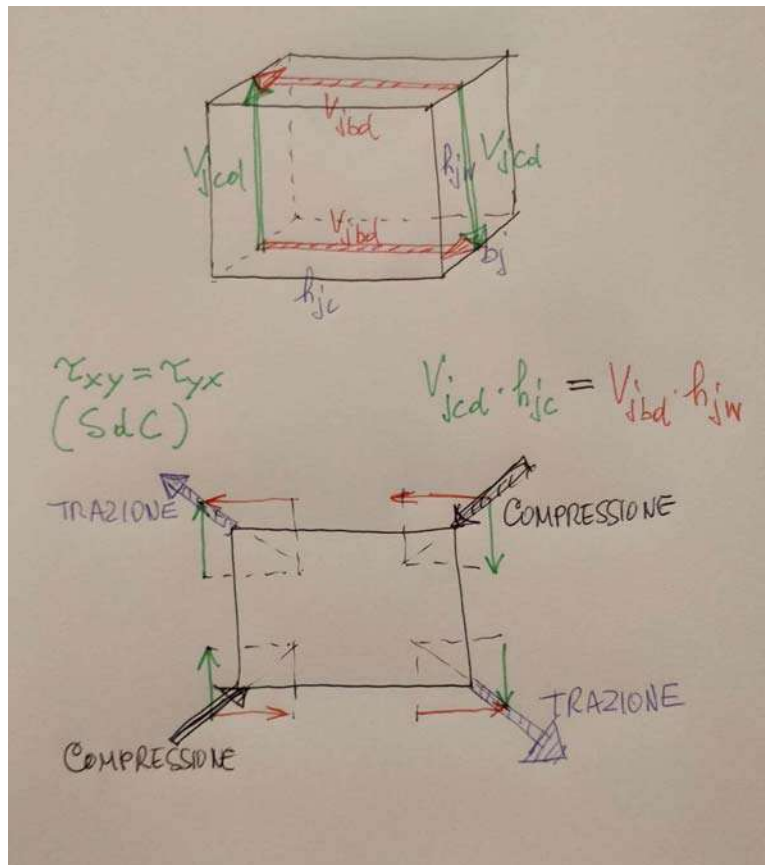 V_jbd
V_jcd
h_jw
V_jcd
V_jbd
b_j
h_jc
τ_xy = τ_yx
(SdC)
V_jcd · h_jc = V_jbd · h_jw
TRAZIONE
COMPRESSIONE
TRAZIONE
COMPRESSIONE